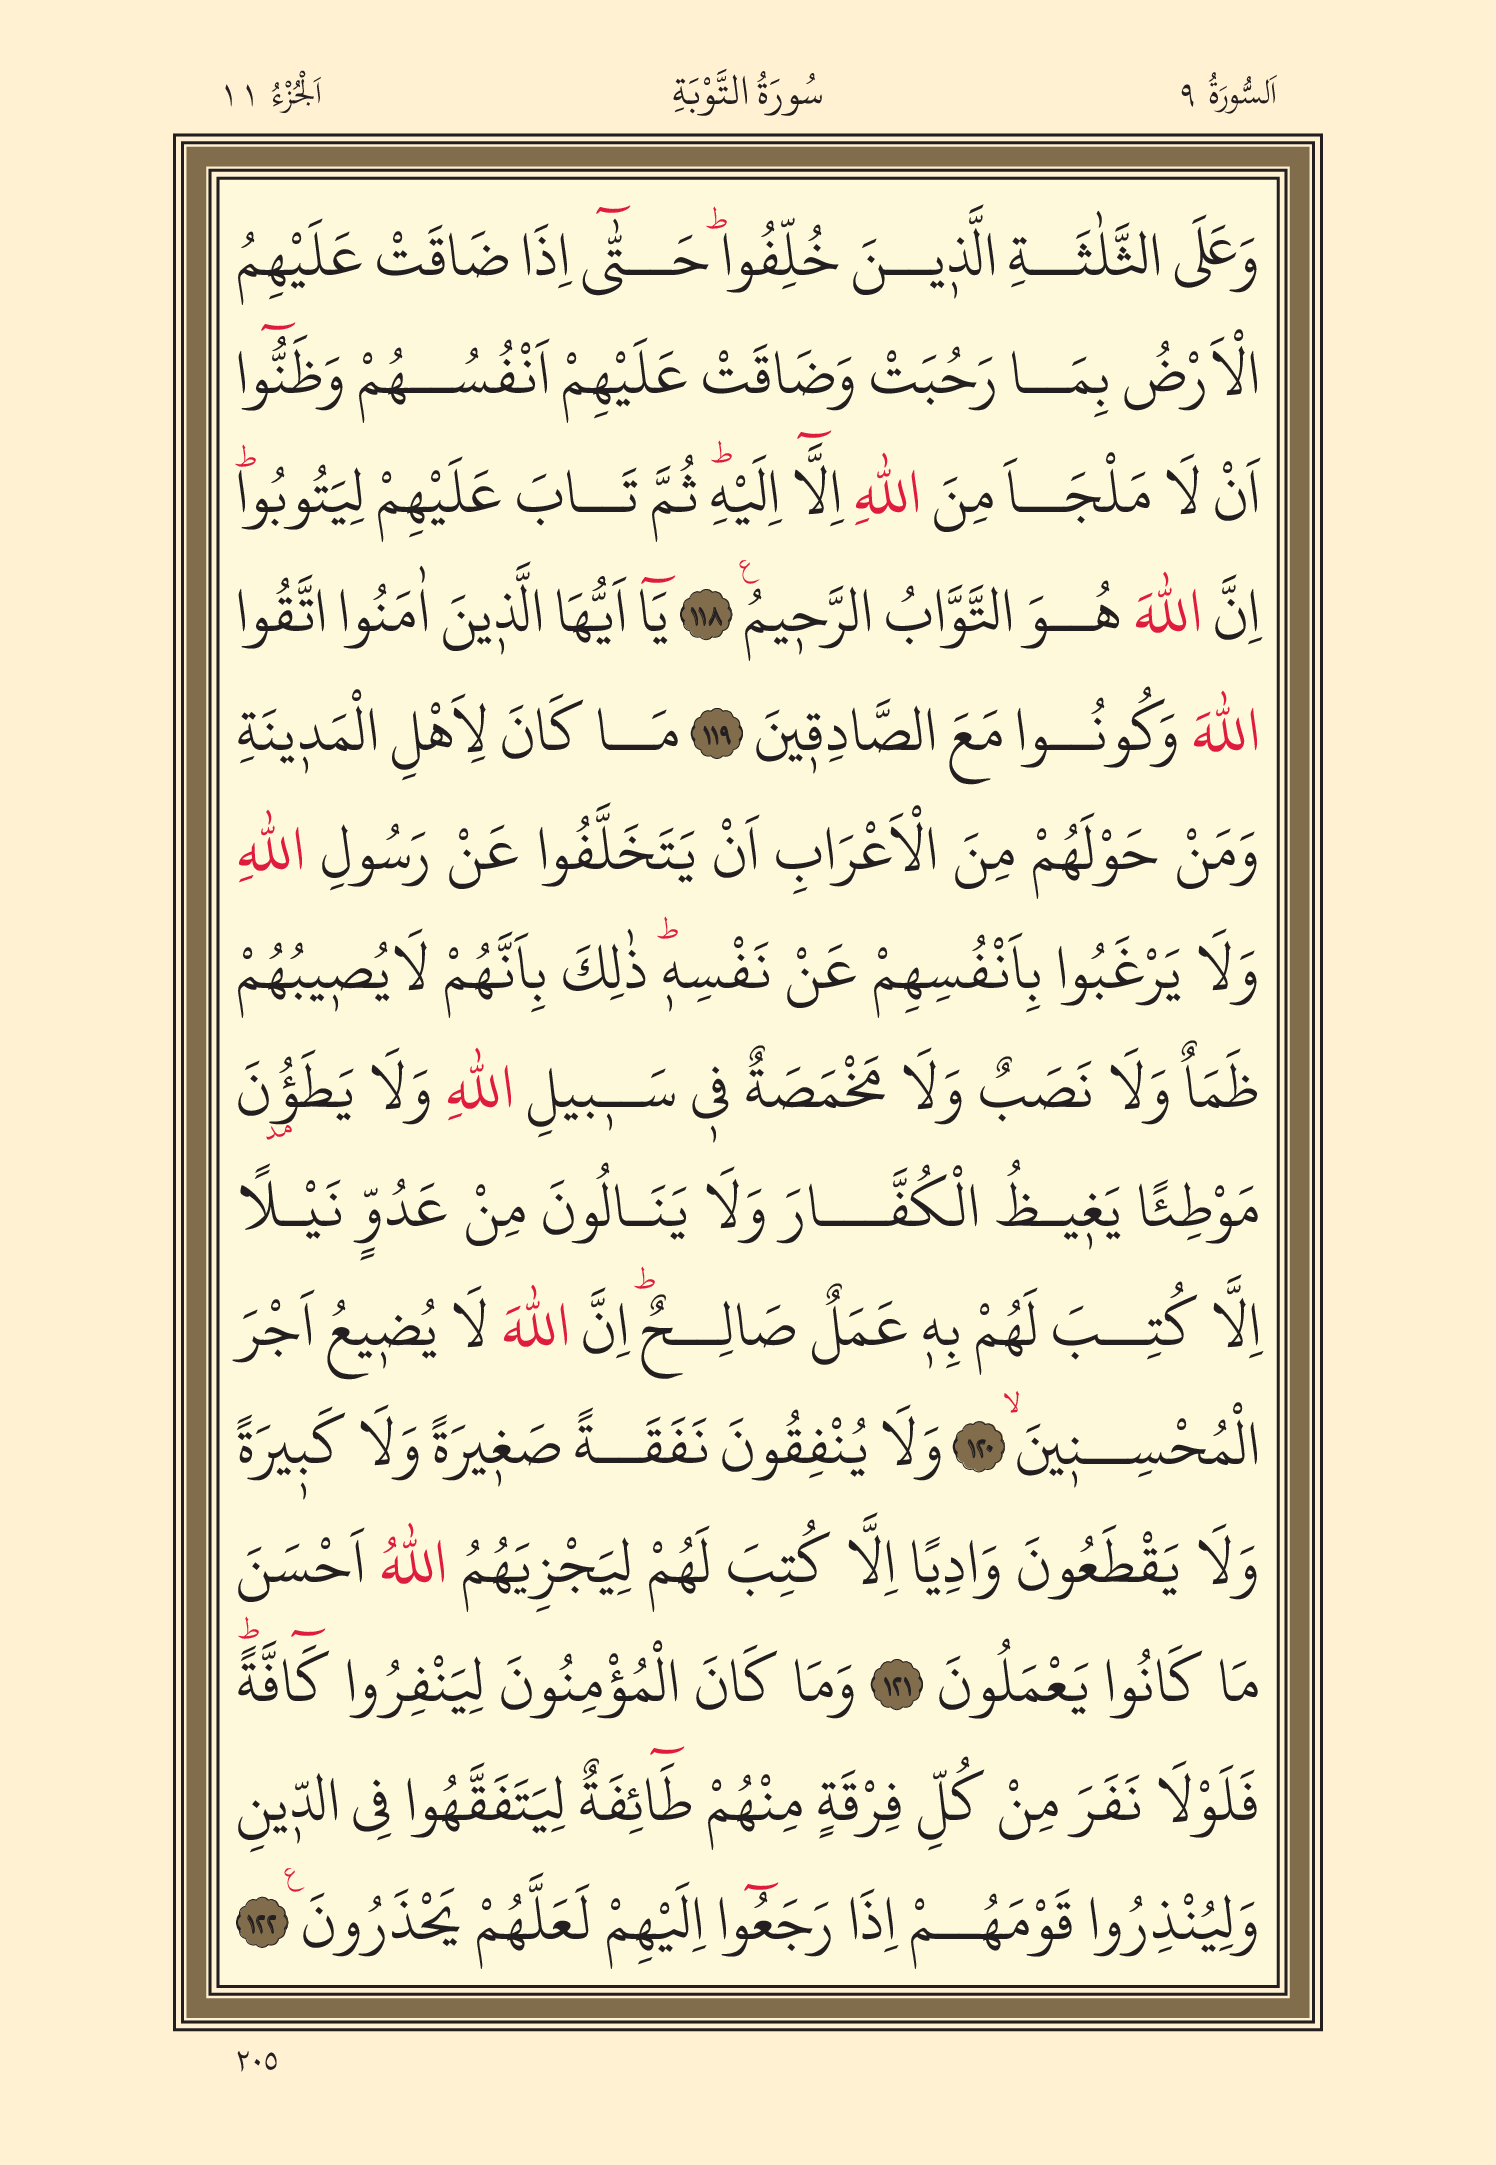 اَلسُّورَةُ ٩ سُورَةُ التَّوْبَةِ اَلْجُزْءُ ١١
وَعَلَى الثَّلٰثَةِ الَّذ۪ينَ خُلِّفُواۜ حَتّٰٓى اِذَا ضَاقَتْ عَلَيْهِمُ
الْاَرْضُ بِمَا رَحُبَتْ وَضَاقَتْ عَلَيْهِمْ اَنْفُسُهُمْ وَظَنُّٓوا
اَنْ لَا مَلْجَاَ مِنَ اللّٰهِ اِلَّٓا اِلَيْهِۜ ثُمَّ تَابَ عَلَيْهِمْ لِيَتُوبُواۜ
اِنَّ اللّٰهَ هُوَ التَّوَّابُ الرَّح۪يمُ ࣖ ﴿١١٨﴾ يَٓا اَيُّهَا الَّذ۪ينَ اٰمَنُوا اتَّقُوا
اللّٰهَ وَكُونُوا مَعَ الصَّادِق۪ينَ ﴿١١٩﴾ مَا كَانَ لِاَهْلِ الْمَد۪ينَةِ
وَمَنْ حَوْلَهُمْ مِنَ الْاَعْرَابِ اَنْ يَتَخَلَّفُوا عَنْ رَسُولِ اللّٰهِ
وَلَا يَرْغَبُوا بِاَنْفُسِهِمْ عَنْ نَفْسِه۪ۜ ذٰلِكَ بِاَنَّهُمْ لَا يُص۪يبُهُمْ
ظَمَاٌ وَلَا نَصَبٌ وَلَا مَخْمَصَةٌ ف۪ي سَب۪يلِ اللّٰهِ وَلَا يَطَؤُ۫نَ
مَوْطِئًا يَغ۪يظُ الْكُفَّارَ وَلَا يَنَالُونَ مِنْ عَدُوٍّ نَيْلًا
اِلَّا كُتِبَ لَهُمْ بِه۪ عَمَلٌ صَالِحٌۜ اِنَّ اللّٰهَ لَا يُض۪يعُ اَجْرَ
الْمُحْسِن۪ينَۙ ﴿١٢٠﴾ وَلَا يُنْفِقُونَ نَفَقَةً صَغ۪يرَةً وَلَا كَب۪يرَةً
وَلَا يَقْطَعُونَ وَادِيًا اِلَّا كُتِبَ لَهُمْ لِيَجْزِيَهُمُ اللّٰهُ اَحْسَنَ
مَا كَانُوا يَعْمَلُونَ ﴿١٢١﴾ وَمَا كَانَ الْمُؤْمِنُونَ لِيَنْفِرُوا كَٓافَّةًۜ
فَلَوْلَا نَفَرَ مِنْ كُلِّ فِرْقَةٍ مِنْهُمْ طَٓائِفَةٌ لِيَتَفَقَّهُوا فِي الدّ۪ينِ
وَلِيُنْذِرُوا قَوْمَهُمْ اِذَا رَجَعُٓوا اِلَيْهِمْ لَعَلَّهُمْ يَحْذَرُونَ ࣖ ﴿١٢٢﴾
٢٠٥